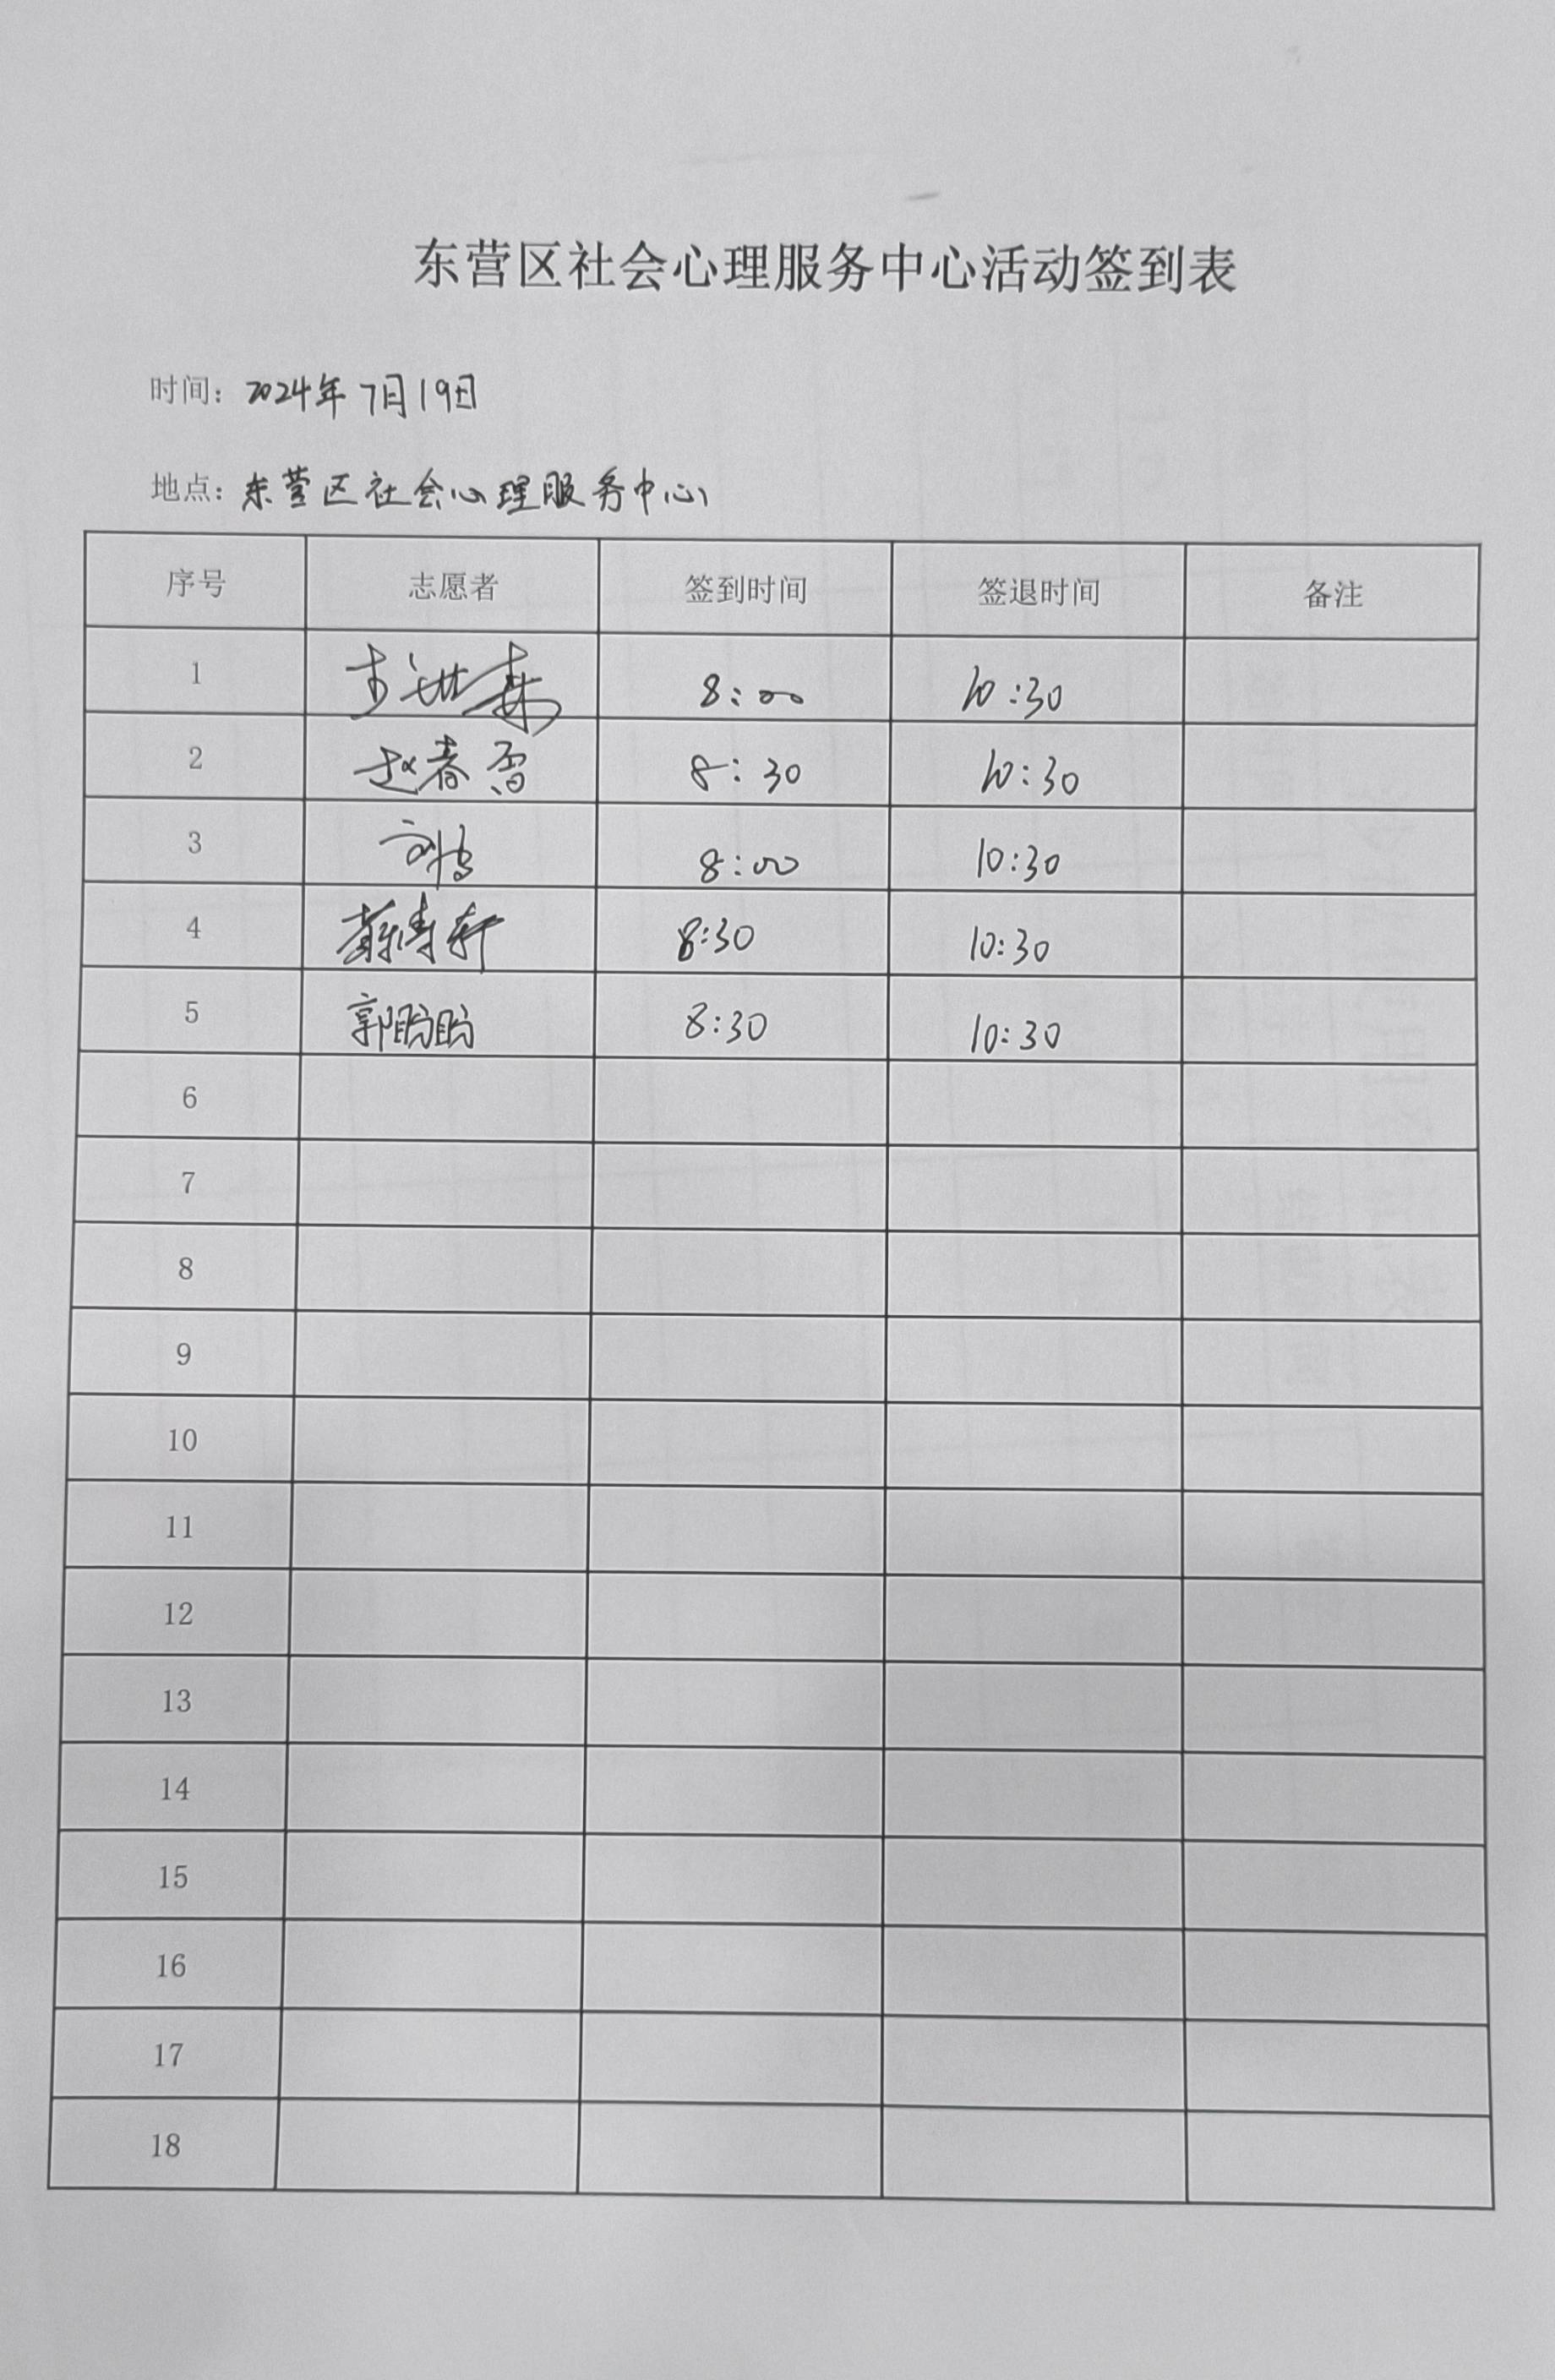 东营区社会心理服务中心活动签到表
时间：2024年7月19日
地点：东营区社会心理服务中心
序号 志愿者 签到时间 签退时间 备注
1 8:00 10:30
2 赵春雪 8:30 10:30
3 8:00 10:30
4 8:30 10:30
5 郭盼盼 8:30 10:30
6
7
8
9
10
11
12
13
14
15
16
17
18